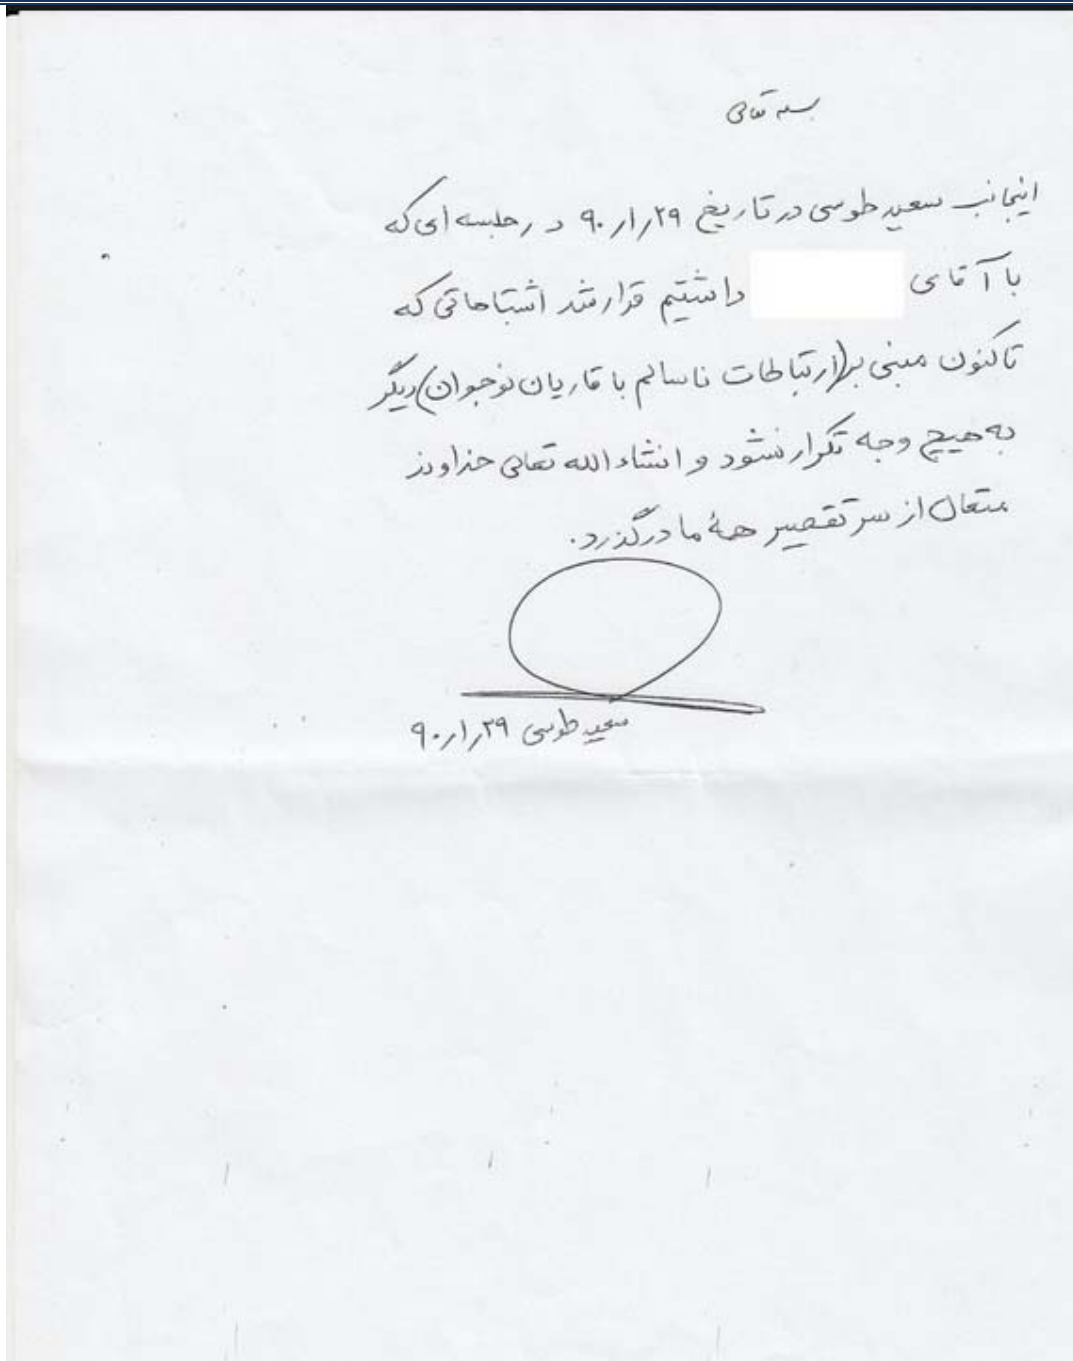 بسمه تعالی
اینجانب سعید طوسی در تاریخ ۲۹ر۱ر۹۰ در جلسه ای که
با آقای داشتیم قرار شد اشتباهاتی که
تاکنون مبنی بر(ارتباطات ناسالم با قاریان نوجوان)دیگر
به هیچ وجه تکرار نشود و انشاء الله تعالی خداوند
متعال از سر تقصیر همهٔ ما درگذرد.
سعید طوسی ۲۹ر۱ر۹۰